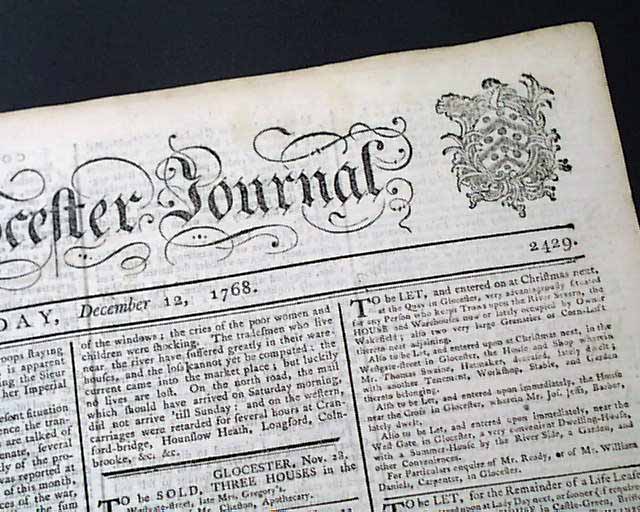 cester Journal
2429.
DAY, December 12, 1768.
oops staying
is apparent
her Imperial
esent situation
ence, the tran-
are talked of
enate, several
dy of the pro-
was reported at
of this month.
ces of the war,
the sum
of the windows; the cries of the poor women and
children were shocking. The tradesmen who live
near the river have suffered greatly in their ware-
houses, and the loss cannot yet be computed: the
current came into the market place; but luckily
no lives are lost. On the north road, the mail
which should have arrived on Saturday morning,
did not arrive 'till Sunday; and on the western,
carriages were retarded for several hours at Cran-
ford-bridge, Hounslow Heath, Longford, Coln-
brooke, &c. &c.
GLOCESTER, Nov. 28.
TO be SOLD, THREE HOUSES in the
Westgate-street, late Mrs. Gregory's.
Mr. Cheston, Apothecary.
TO be LET, and entered on at Christmas next,
at the Quay in Glocester, very advantageously situated
for any Person who keeps Trows upon the River Severn, the
HOUSE and Warehouses now or lately occupied by Owner
Wakefield; also two very large Granaries or Corn-Lofts
thereto near adjoining.
Also to be Let, and entered upon at Christmas next, in the
Westgate-street in Glocester, the House and Shop wherein
Mr. Thomas Swaine, Hatmaker, lately
also another Tenement, Workshop, Stable, and Garden
thereto belonging.
Also to be Let, and entered upon immediately, the House
near the Cross in Glocester, wherein Mr. Jos. Jefts, Barber,
lately dwelt.
Also to be Let, and entered upon immediately, near the
West Gate in Glocester, a very convenient Dwelling-House,
with a Summer-House by the River Side, a Garden, and
other Conveniences.
For Particulars enquire of Mr. Ready, or of Mr. William
Daniels, Carpenter, in Glocester.
TO be LET, for the Remainder of a Life Lease
upon at Lady Day next, or sooner (if required
in Castle-Green,